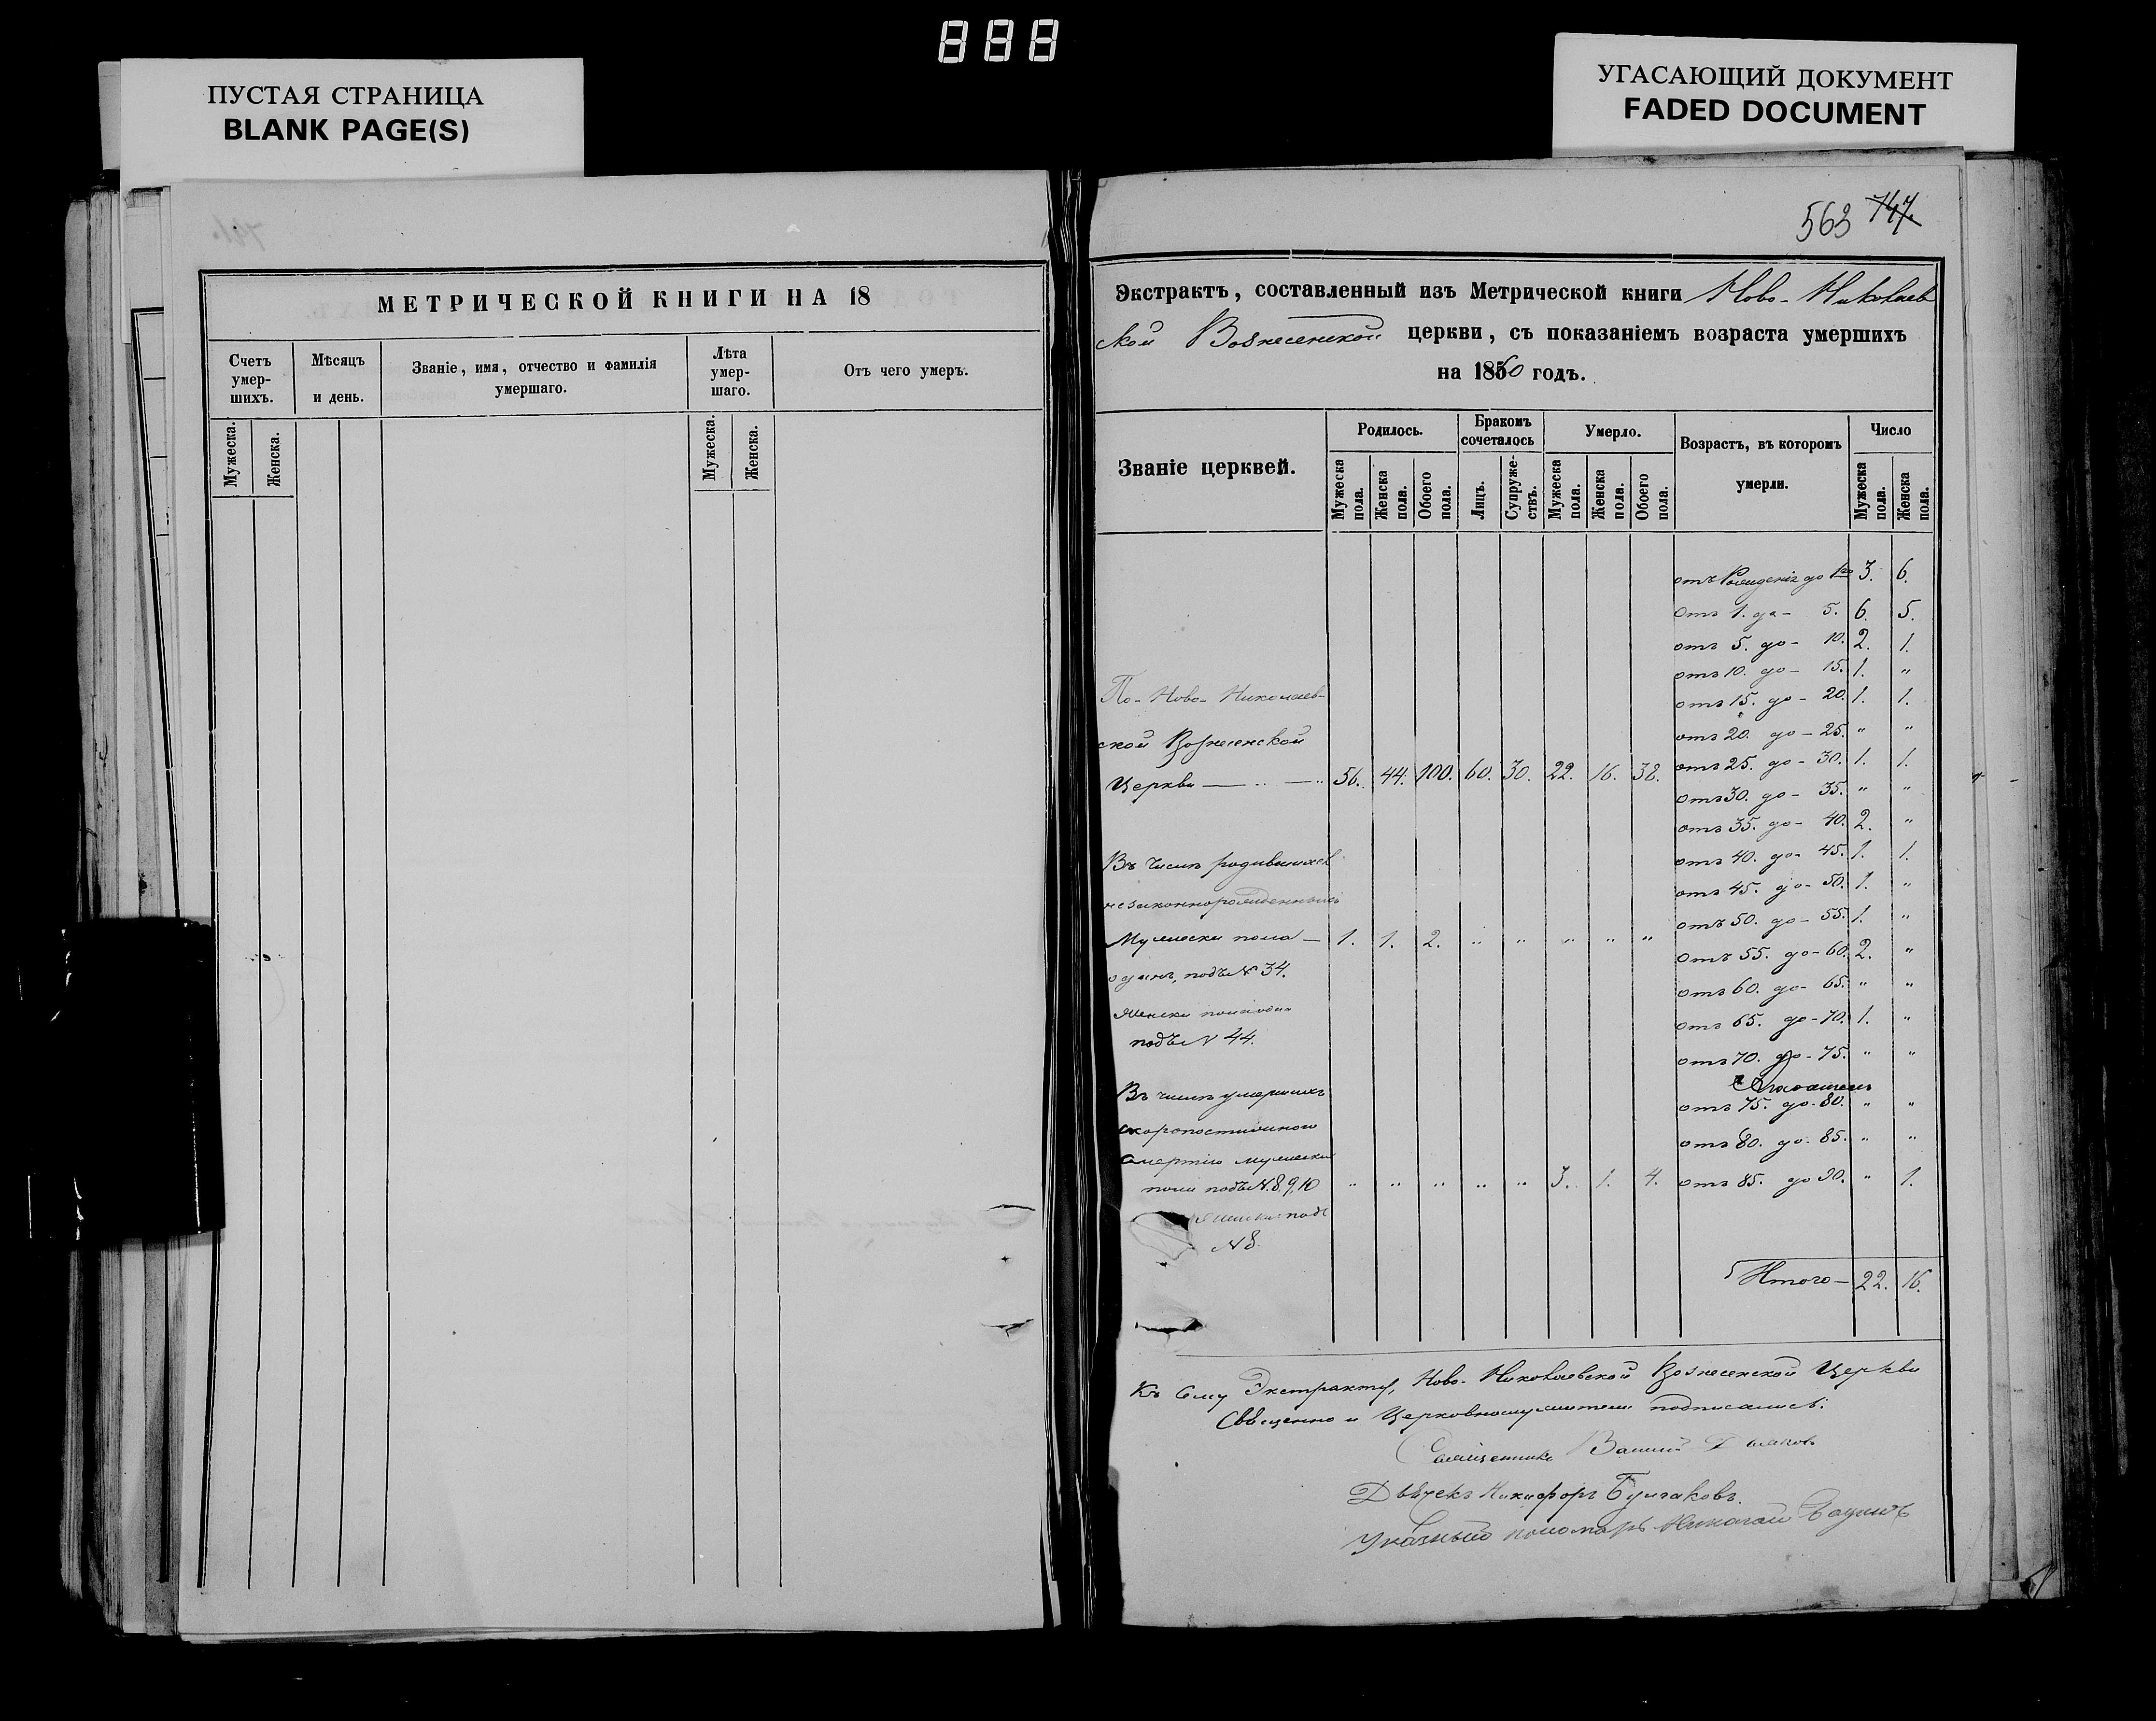 888
ПУСТАЯ СТРАНИЦА
BLANK PAGE(S)
УГАСАЮЩИЙ ДОКУМЕНТ
FADED DOCUMENT
МЕТРИЧЕСКОЙ КНИГИ НА 18
Счетъ умер-шихъ.
Мѣсяцъ и день.
Званіе, имя, отчество и фамилія умершаго.
Лѣта умер-шаго.
Отъ чего умеръ.
Мужеска.
Женска.
Мужеска.
Женска.
563 747.
Экстрактъ, составленный изъ Метрической книги Ново-Николаев
ской Вознесенской церкви, съ показаніемъ возраста умершихъ
на 1860 годъ.
Званіе церквей.
Родилось.
Бракомъ сочеталось
Умерло.
Возрастъ, въ которомъ умерли.
Число
Мужеска пола.
Женска пола.
Обоего пола.
Лицъ.
Супруже-ствъ.
Мужеска пола.
Женска пола.
Обоего пола.
Мужеска пола.
Женска пола.
отъ Рожденія до 1го 3. 6.
отъ 1. до - 5. 6. 5.
отъ 5. до - 10. 2. 1.
отъ 10. до - 15. 1. "
отъ 15. до - 20. 1. 1.
отъ 20. до - 25. " "
отъ 25. до - 30. 1. 1.
отъ 30. до - 35. " "
отъ 35. до - 40. 2. "
отъ 40. до - 45. 1. 1.
отъ 45. до - 50. 1. "
отъ 50. до - 55. 1. "
отъ 55. до - 60. 2. "
отъ 60. до - 65. " "
отъ 65. до - 70. 1. "
отъ 70. до - 75. " "
отъ 75. до - 80. " "
отъ 80. до - 85. " "
отъ 85. до 90. " 1.
Итого — 22. 16.
По-Ново-Николаев-
ской Вознесенской
Церкви — .. — .. 56. 44. 100. 60. 30. 22. 16. 38.
Въ числѣ родившихся
незаконнорожденныхъ
Мужеска пола — 1. 1. 2. " " " " "
одинъ, подъ № 34.
Женска пола одна
подъ № 44.
Въ числѣ умершихъ
скоропостижною
смертію мужеска
пола подъ №. 8, 9, 10 " " " " " 3. 1. 4.
Женска подъ
№ 8.
Къ Сему Экстракту, Ново-Николаевской Вознесенской Церкви
Священно и Церковнослужители подписались:
Священникъ
Дьячекъ Никифоръ Булгаковъ.
Указный пономарь Николай